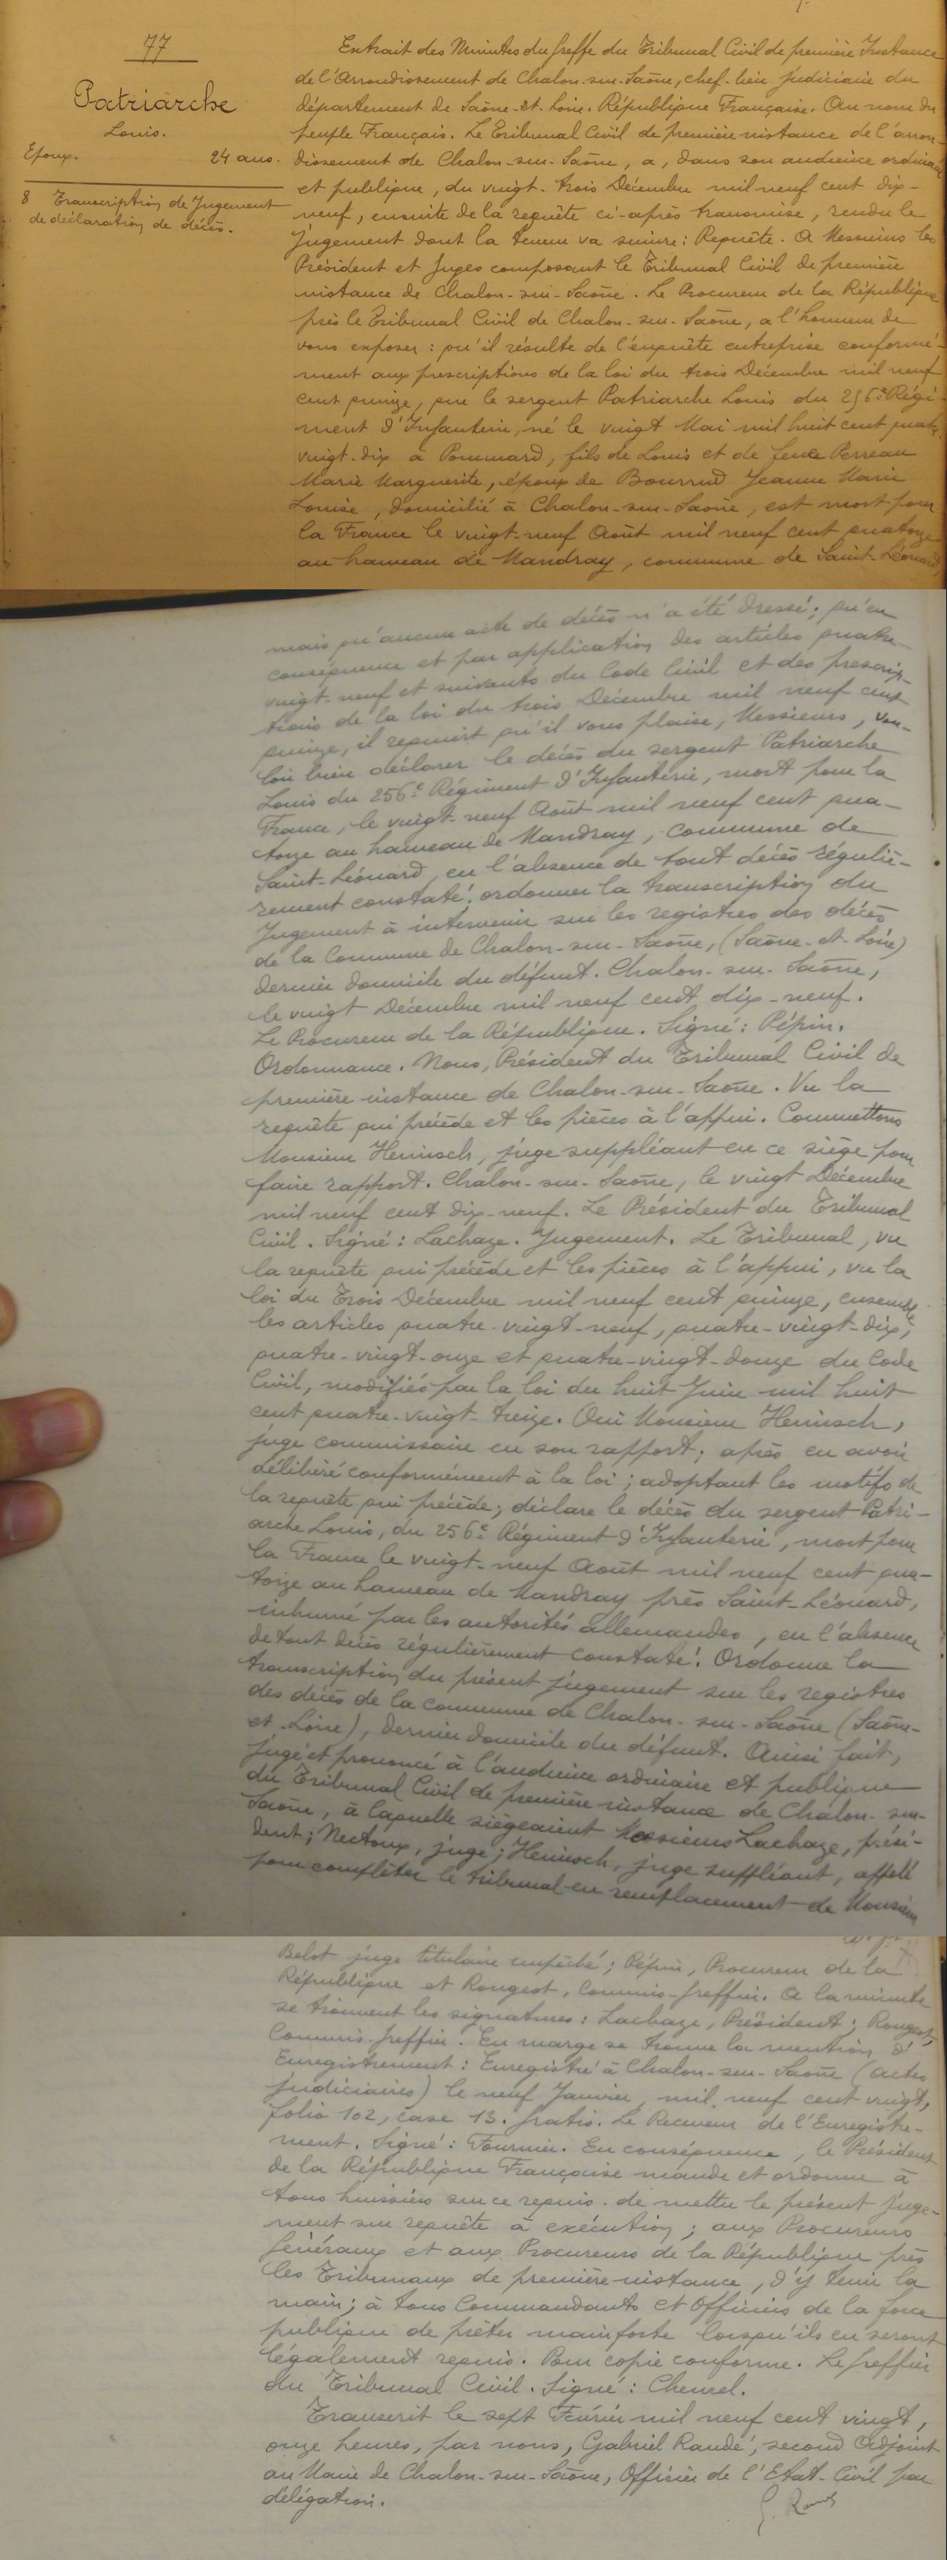 77
Patriarche
Louis.
Epoux. 24 ans.
8 Transcription de Jugement
de déclaration de décès.
Extrait des Minutes du Greffe du Tribunal Civil de première Instance
de l'Arrondissement de Chalon-sur-Saône, chef-lieu judiciaire du
département de Saône-et-Loire. République Française. Au nom du
peuple Français. Le Tribunal Civil de première instance de l'arron-
dissement de Chalon-sur-Saône, a, dans son audience ordinaire
et publique, du vingt-trois Décembre mil neuf cent dix-
neuf, ensuite de la requête ci-après transmise, rendu le
jugement dont la teneur va suivre: Requête. A Messieurs les
Président et Juges composant le Tribunal Civil de première
instance de Chalon-sur-Saône. Le Procureur de la République
près le Tribunal Civil de Chalon-sur-Saône, a l'honneur de
vous exposer: qu'il résulte de l'enquête entreprise conformé-
ment aux prescriptions de la loi du trois Décembre mil neuf
cent quinze, que le sergent Patriarche Louis du 256e Régi-
ment d'Infanterie, né le vingt Mai mil huit cent quatre
vingt-dix à Pommard, fils de Louis et de feue Perreau
Marie Marguerite, époux de Bourrud Jeanne Marie
Louise, domicilié à Chalon-sur-Saône, est mort pour
la France le vingt-neuf Août mil neuf cent quatorze
au hameau de Mandray, commune de Saint-Léonard
mais qu'aucun acte de décès n'a été dressé; qu'en
conséquence et par application des articles quatre-
vingt-neuf et suivants du Code Civil et des prescrip-
tions de la loi du trois Décembre mil neuf cent
quinze, il requiert qu'il vous plaise, Messieurs, vou-
loir bien déclarer le décès du sergent Patriarche
Louis du 256e Régiment d'Infanterie, mort pour la
France, le vingt-neuf Août mil neuf cent qua-
torze au hameau de Mandray, commune de
Saint-Léonard, en l'absence de tout décès réguliè-
rement constaté; ordonner la transcription du
Jugement à intervenir sur les registres des décès
de la Commune de Chalon-sur-Saône, (Saône-et-Loire)
dernier domicile du défunt. Chalon-sur-Saône,
le vingt Décembre mil neuf cent dix-neuf.
Le Procureur de la République. Signé: Pépin.
Ordonnance. Nous, Président du Tribunal Civil de
première instance de Chalon-sur-Saône. Vu la
requête qui précède et les pièces à l'appui. Commettons
Monsieur Heinisch, juge suppléant en ce siège pour
faire rapport. Chalon-sur-Saône, le vingt Décembre
mil neuf cent dix-neuf. Le Président du Tribunal
Civil. Signé: Lachaze. Jugement. Le Tribunal, vu
la requête qui précède et les pièces à l'appui, vu la
loi du Trois Décembre mil neuf cent quinze, ensemble
les articles quatre-vingt-neuf, quatre-vingt-dix,
quatre-vingt-onze et quatre-vingt-douze du Code
Civil, modifiés par la loi du huit Juin mil huit
cent quatre-vingt-treize. Oui Monsieur Heinisch,
juge commissaire en son rapport; après en avoir
délibéré conformément à la loi; adoptant les motifs de
la requête qui précède; déclare le décès du sergent Patri-
arche Louis, du 256e Régiment d'Infanterie, mort pour
la France le vingt-neuf Août mil neuf cent qua-
torze au hameau de Mandray près Saint-Léonard,
inhumé par les autorités allemandes, en l'absence
de tout décès régulièrement constaté. Ordonne la
transcription du présent jugement sur les registres
des décès de la commune de Chalon-sur-Saône (Saône-
et-Loire), dernier domicile du défunt. Ainsi fait,
jugé et prononcé à l'audience ordinaire et publique
du Tribunal Civil de première instance de Chalon-sur-
Saône, à laquelle siégeaient Messieurs Lachaze, prési-
dent; Nectoux, juge; Heinisch, juge suppléant, appelé
pour compléter le tribunal en remplacement de Monsieur
Belot juge titulaire empêché; Pépin, Procureur de la
République et Rougeot, Commis-Greffier. A la minute
se trouvent les signatures: Lachaze, Président; Rougeot,
Commis-Greffier. En marge se trouve la mention d'
Enregistrement: Enregistré à Chalon-sur-Saône (actes
judiciaires) le neuf Janvier mil neuf cent vingt,
folio 102, case 13. Gratis. Le Receveur de l'Enregistre-
ment. Signé: Fournier. En conséquence, le Président
de la République Française mande et ordonne à
tous huissiers sur ce requis de mettre le présent juge-
ment sur requête à exécution; aux Procureurs
Généraux et aux Procureurs de la République près
les Tribunaux de première instance, d'y tenir la
main; à tous Commandants et Officiers de la force
publique de prêter mainforte lorsqu'ils en seront
légalement requis. Pour copie conforme. Le Greffier
du Tribunal Civil. Signé: Cheurel.
Transcrit le sept Février mil neuf cent vingt,
onze heures, par nous, Gabriel Raudé, second Adjoint
au Maire de Chalon-sur-Saône, Officier de l'Etat-Civil par
délégation.